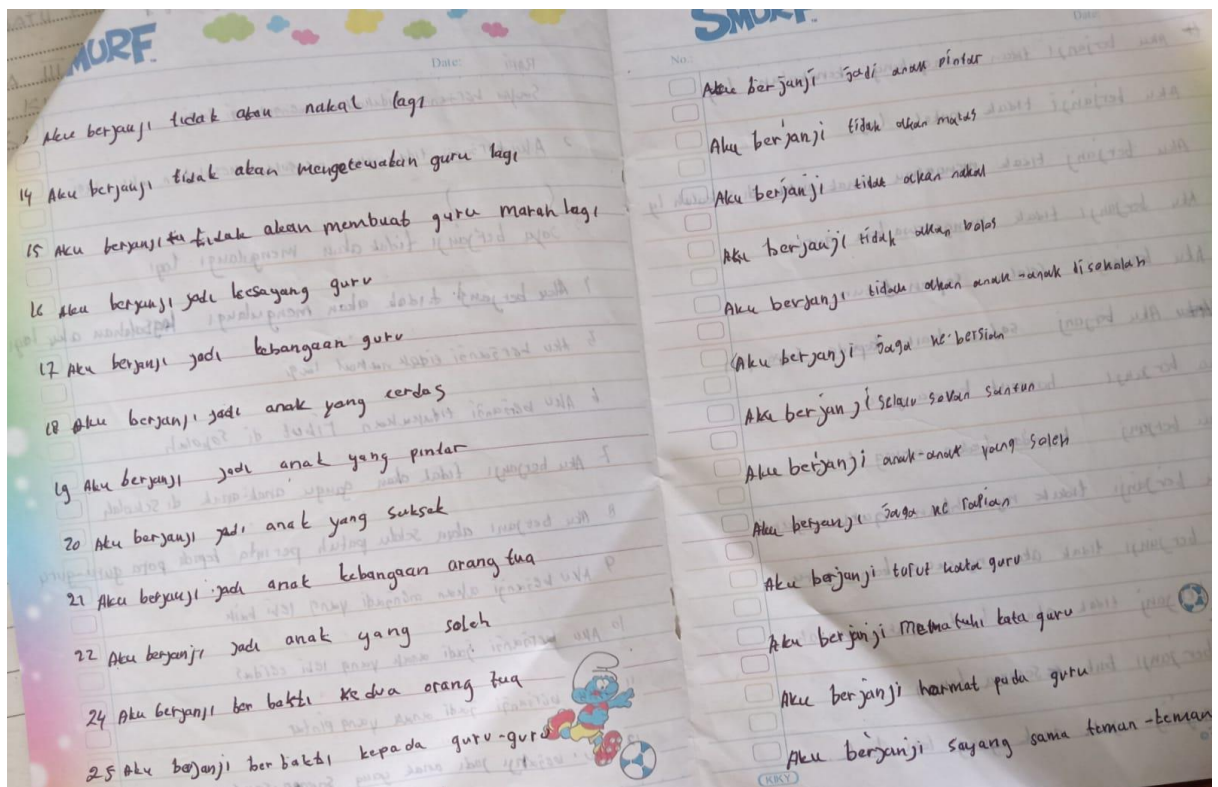 SMURF
Date:
Aku berjanji tidak akan nakal lagi
14 Aku berjanji tidak akan mengetewakan guru lagi
15 Aku berjanji tidak akan membuat guru marah lagi
16 Aku berjanji jadi kesayang guru
17 Aku berjanji jadi kebangaan guru
18 Aku berjanji jadi anak yang cerdas
19 Aku berjanji jadi anak yang pintar
20 Aku berjanji jadi anak yang suksek
21 Aku berjanji jadi anak kebangaan arang tua
22 Aku berjanji jadi anak yang soleh
24 Aku berjanji ber bakti kedua orang tua
25 Aku berjanji ber bakti kepada guru-guru
SMURF
No.:
Date:
Aku berjanji jadi anak pintar
Aku berjanji tidak akan malas
Aku berjanji tidak akan nakal
Aku berjanji tidak akan bolos
Aku berjanji tidak akan anak-anak disekolah
Aku berjanji jaga ke bersian
Aku berjanji selalu sovan santun
Aku berjanji anak-anak yang soleh
Aku berjanji jaga ke
Aku berjanji turut kata guru
Aku berjanji mematuhi kata guru
Aku berjanji harmat pada guru
Aku berjanji sayang sama teman-teman
KIKY